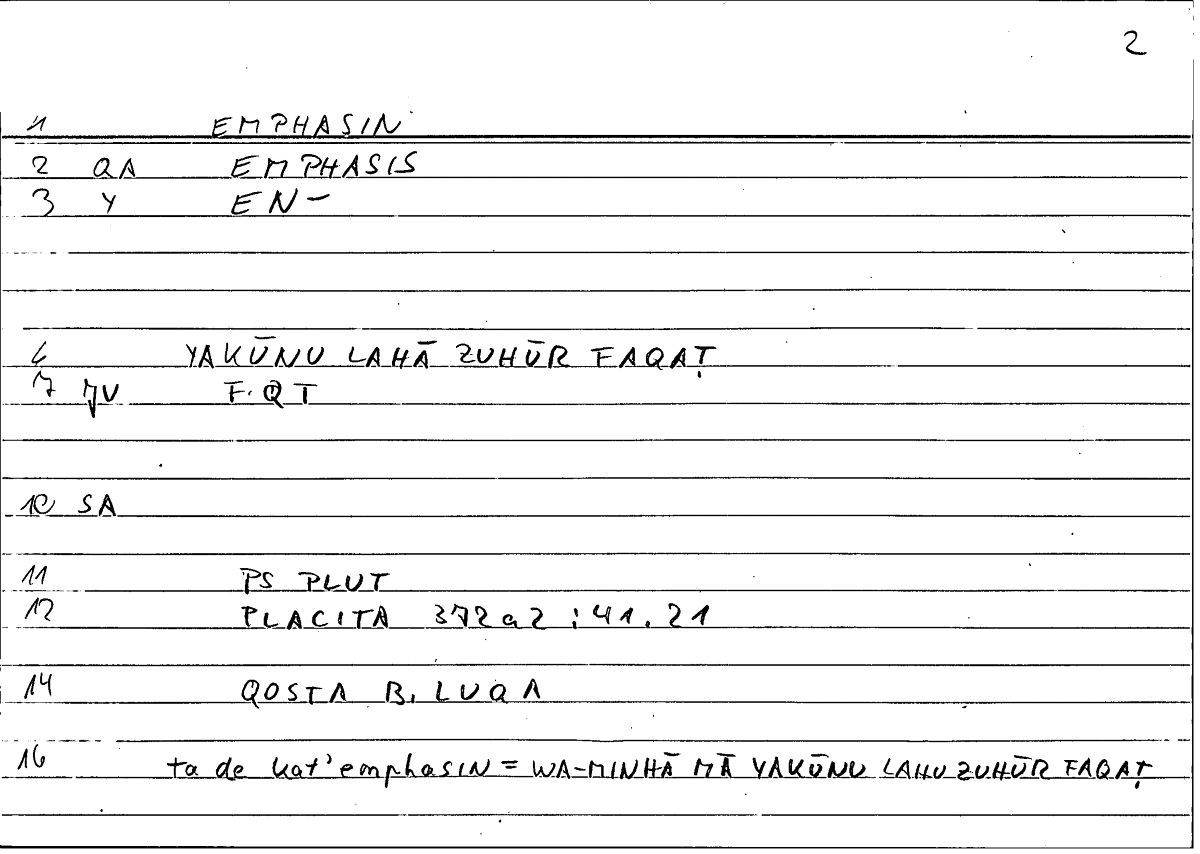 2
1 EMPHASIN
2 QA EMPHASIS
3 Y EN-
6 YAKŪNU LAHĀ ZUHŪR FAQAṬ
7 F.QT
10 SA
11 PS PLUT
12 PLACITA 372a2 : 41.21
14 QOSTA B. LUQA
16 ta de kat'emphasin = WA-MINHĀ MĀ YAKŪNU LAHU ZUHŪR FAQAṬ